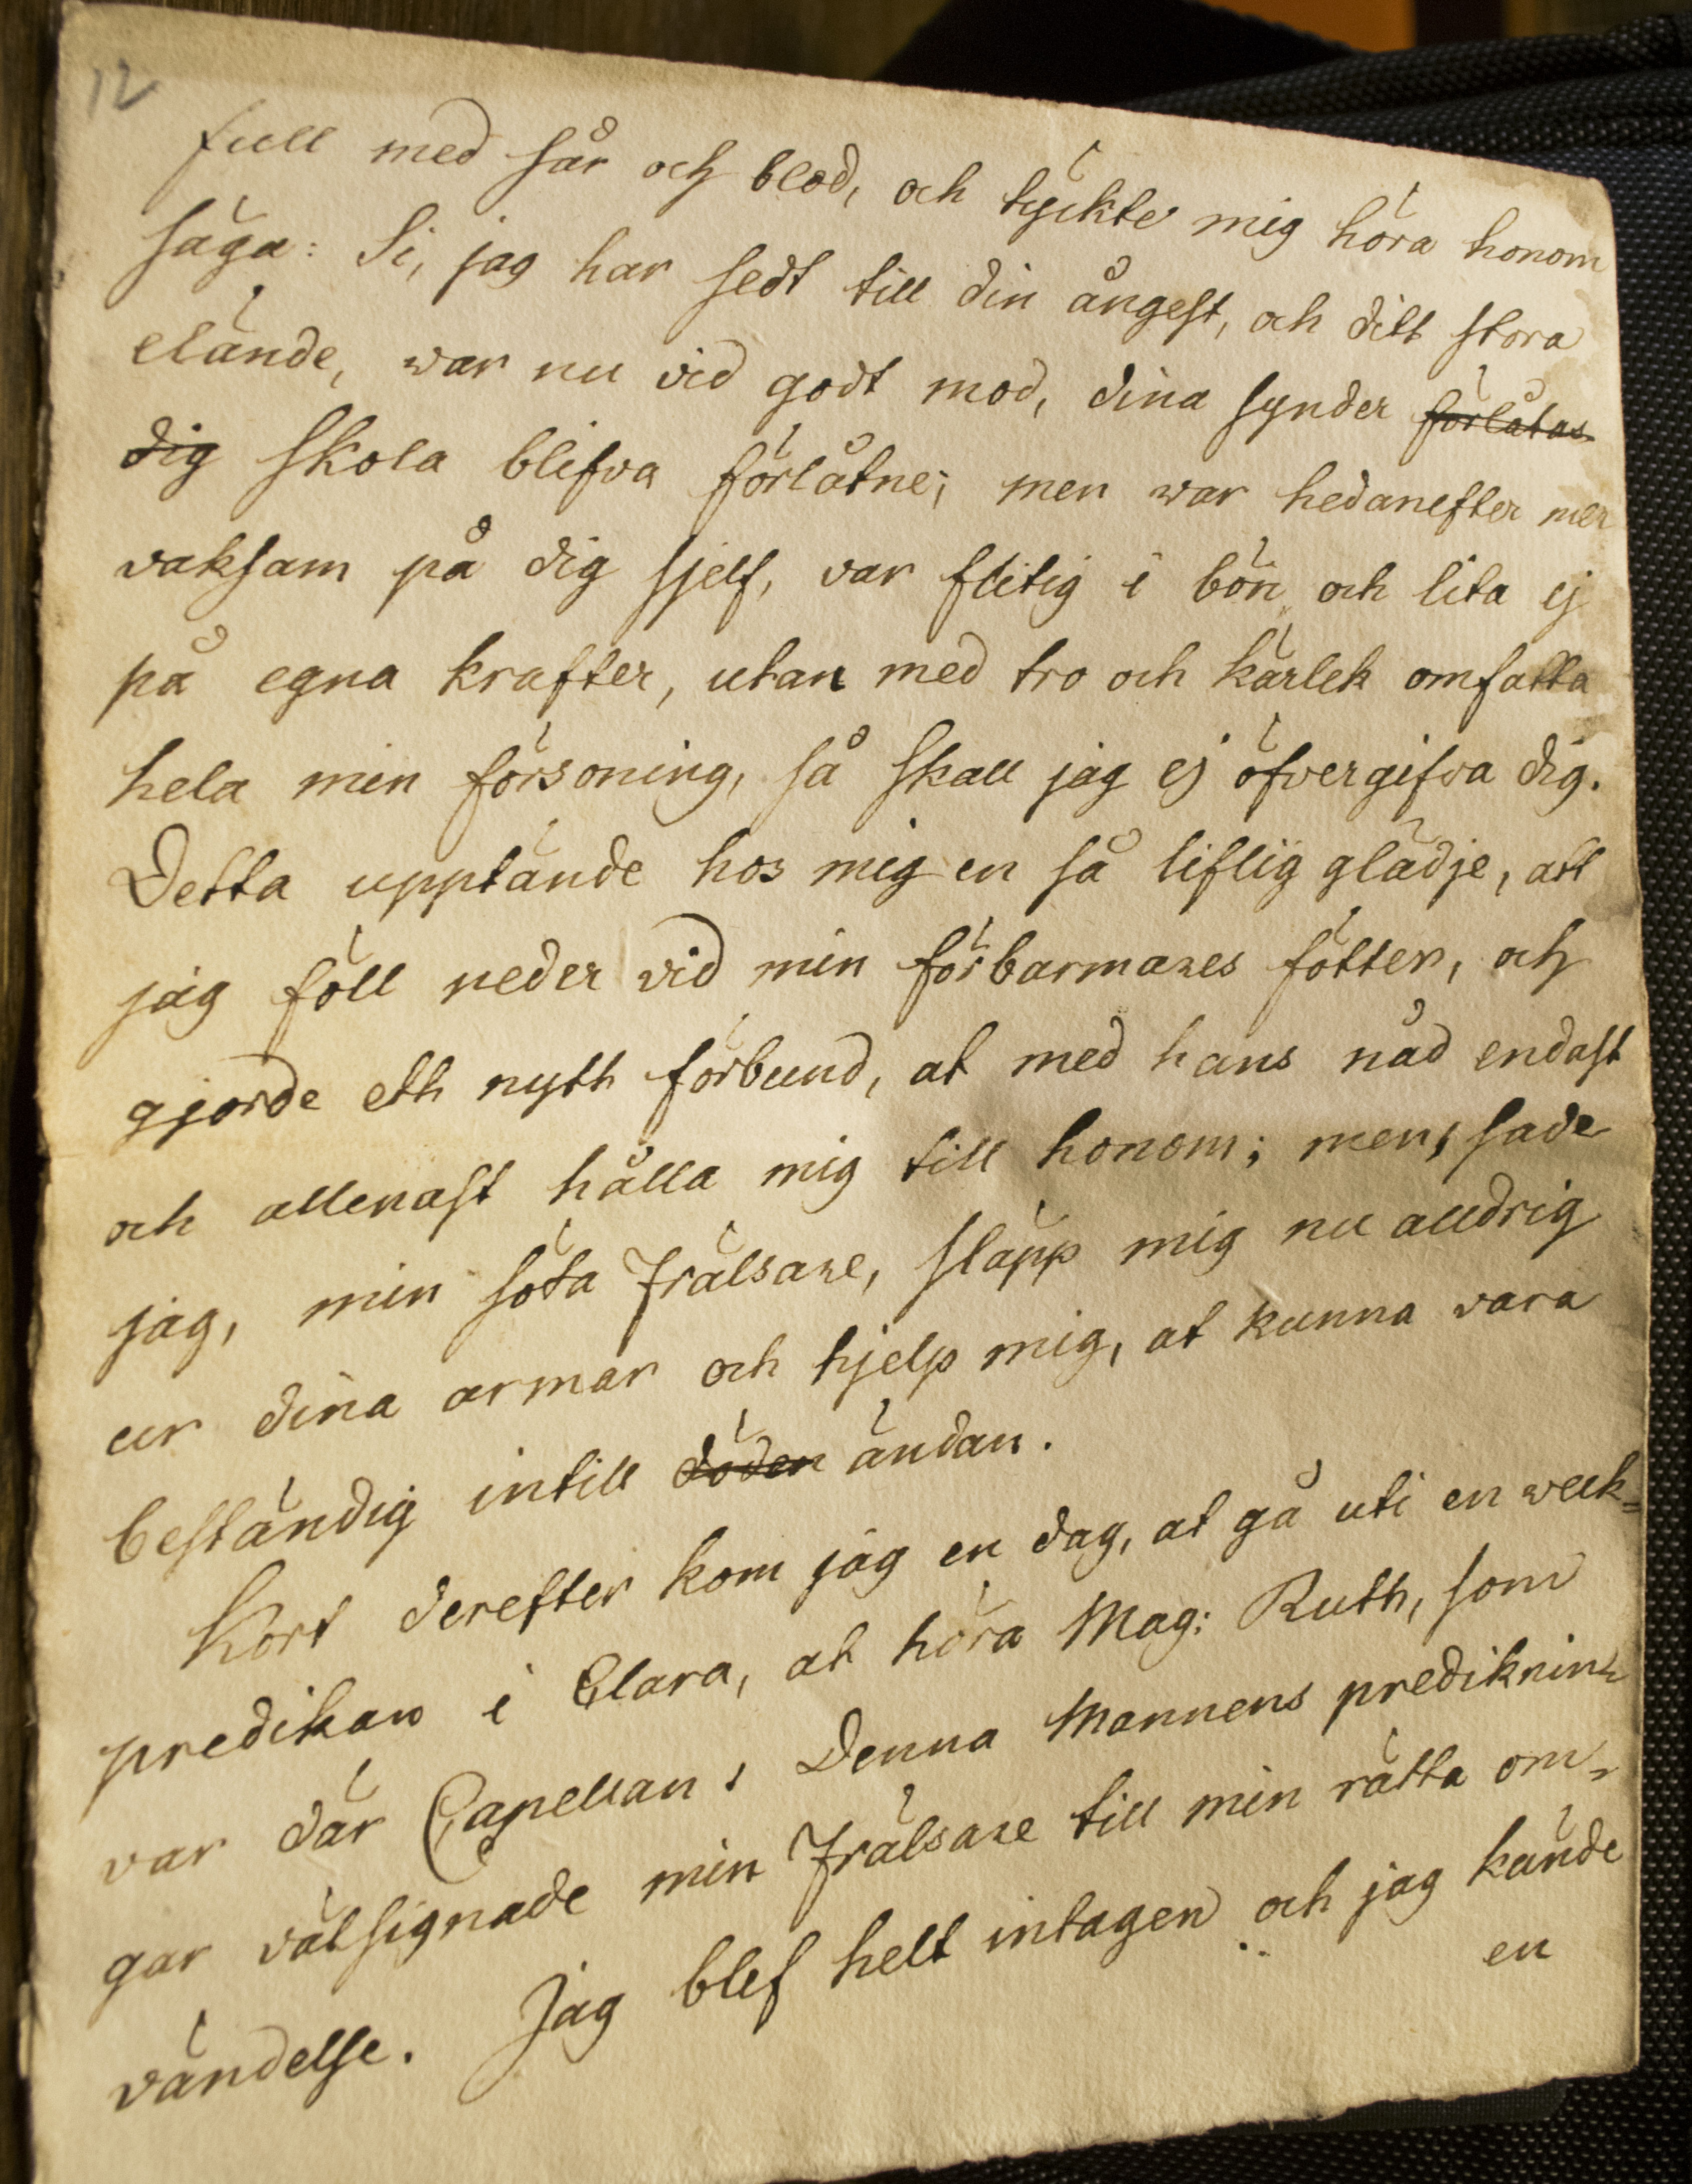 12
full med sår och blod, och tyckte mig höra honom
säga: Si, jag har sedt till din ångest, och ditt stora
elände, war nu vid godt mod, dina synder förlåtas
dig skola blifva förlåtne; men war hedanefter mer
vaksam på dig sjelf, var flitig i bön och lita ej
på egna krafter, utan med tro och kärlek omfatta
hela min försoning, så skall jag ej öfvergifva dig.
Detta upptände hos mig en så liflig glädje, att
jag föll neder vid min förbarmares fötter, och
gjorde ett nytt förbund, at med hans nåd endast
och allenast hålla mig till honom; men, sade
jag, min söta Frälsare, släpp mig nu alldrig
ur dina armar och hjelp mig, at kunna vara
beständig intill döden ändan.
Kort derefter kom jag en dag, at gå uti en weck-
predikan i Clara, at höra Mag: Ruth, som
var där Capellan. Denna Mannens prediknin-
gar välsignade min Frälsare till min rätta om-
vändelse. Jag blef helt intagen och jag kände
en